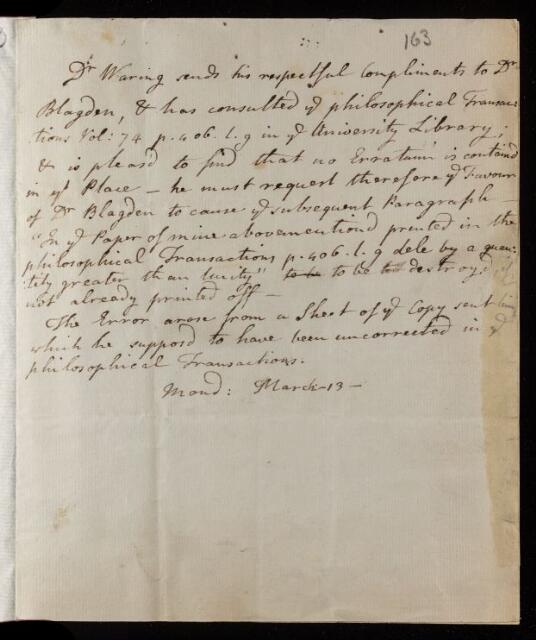 163
Dr Waring sends his respectful Compliments to Dr
Blagden, & has consulted ye philosophical Transac-
tions Vol: 74 p. 406. l. 9 in ye University Library;
& is pleas'd to find that no Erratum is containd
in yt Place — he must request therefore ye Favour
of Dr Blagden to cause ye subsequent Paragraph —
"In ye Paper of mine abovementiond printed in the
philosophical Transactions p. 406. l. 9 dele by a quan-
tity greater than unity" to be to be destroyd, if
not already printed off —
The Error arose from a Sheet of ye Copy sent him
which he supposd to have been uncorrected in ye
philosophical Transactions.
Mond: March-13 —